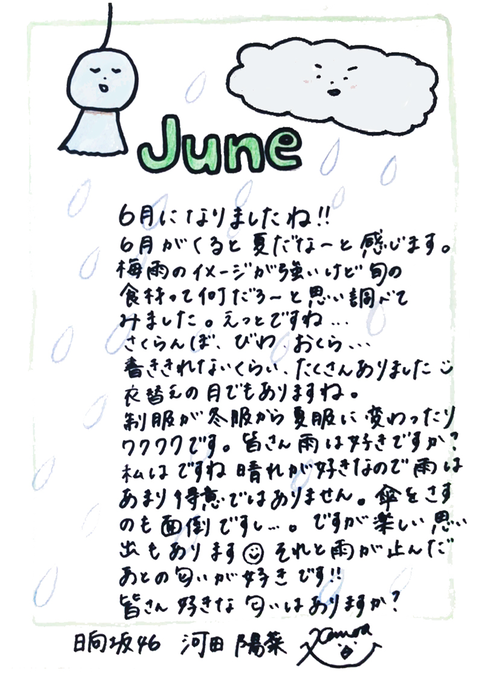 June
6月になりましたね!!
6月がくると夏だな〜と感じます。
梅雨のイメージが強いけど旬の
食材って何だろ〜と思い調べて
みました。えっとですね...
さくらんぼ、びわ、おくら、...
書ききれないくらい、たくさんありました
衣替えの月でもありますね。
制服が冬服から夏服に変わったり
ワクワクです。皆さん雨は好きですか?
私はですね晴れが好きなので雨は
あまり得意ではありません。傘をさす
のも面倒ですし...。ですが楽しい思い
出もあります それと雨が止んだ
あとの匂いが好きです!!
皆さん好きな匂いはありますか?
日向坂46 河田 陽菜